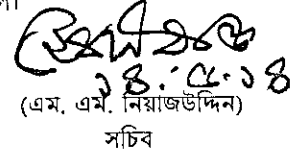 ১৪.৫.১৪
(এম. এম. নিয়াজউদ্দিন)
সচিব